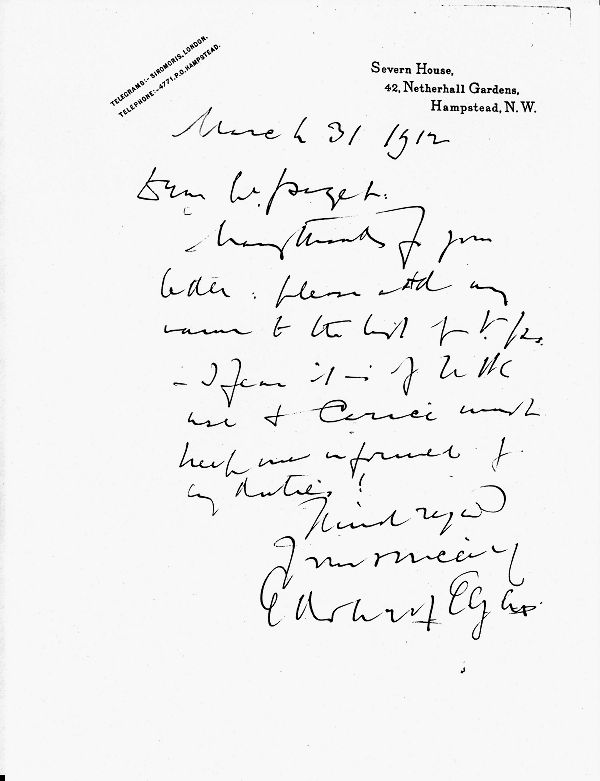 TELEGRAMS:- SIROMORIS, LONDON.
TELEPHONE:- 4771, P.O. HAMPSTEAD.
Severn House,
42, Netherhall Gardens,
Hampstead, N.W.
March 31 1912
Dear Mr. Paget.
Many thanks for your
letter: please add my
name to the list of V. Ps.
– I fear it is of little
use & Carice must
keep me informed of
my duties!
Kind regards
Yours sincerely
Edward Elgar